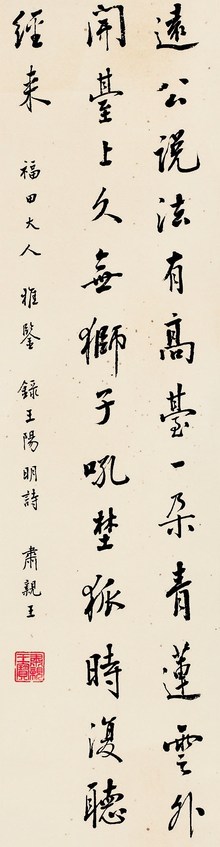 遠公說法有高臺一朵青蓮雲外
開臺上久無獅子吼埜狐時復聽
經来
福田大人 雅鑒 錄王陽明詩 肅親王